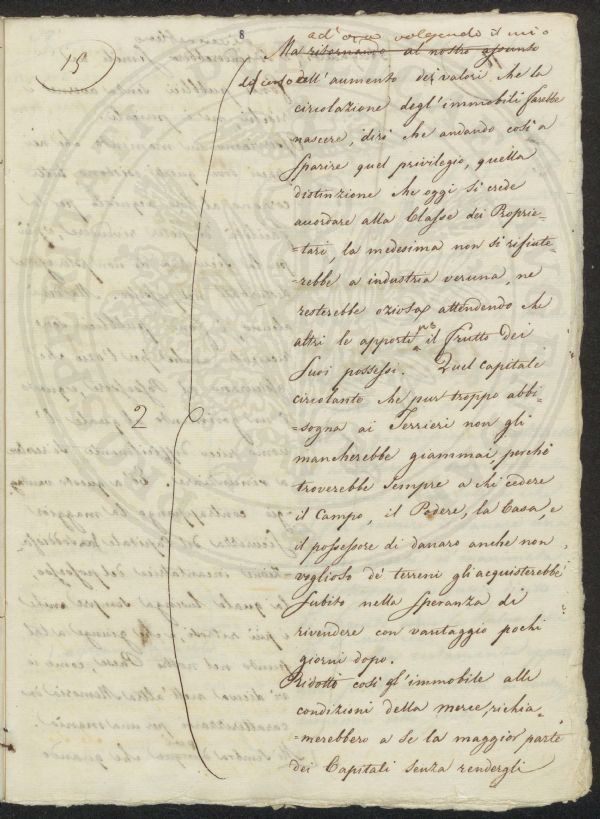 15
8
ad' ora volgendo il mio
Ma ritornando al nostro assunto
discorso all'aumento dei valori che la
circolazione degl'immobili farebbe
nascere, dirò che andando così a
sparire quel privilegio, quella
distinzione che oggi si crede
accordare alla Classe dei Proprie-
=tarj, la medesima non si rifiute-
=rebbe a industria veruna, ne
resterebbe oziosa attendendo che
altri le apporti il frutto dei
suoi possessi. Quel capitale
circolante che pur troppo abbi-
=sogna ai Terrieri non gli
mancherebbe giammai, perchè
troverebbe sempre a chi cedere
il Campo, il Podere, la Casa, e
il possessore di danaro anche non
voglioso de' terreni gli acquisterebbe
subito nella speranza di
rivendere con vantaggio pochi
giorni dopo.
Ridotto così gl'immobile alle
condizioni della merce, richia-
=merebbero a se la maggior parte
dei Capitali senza rendergli
2